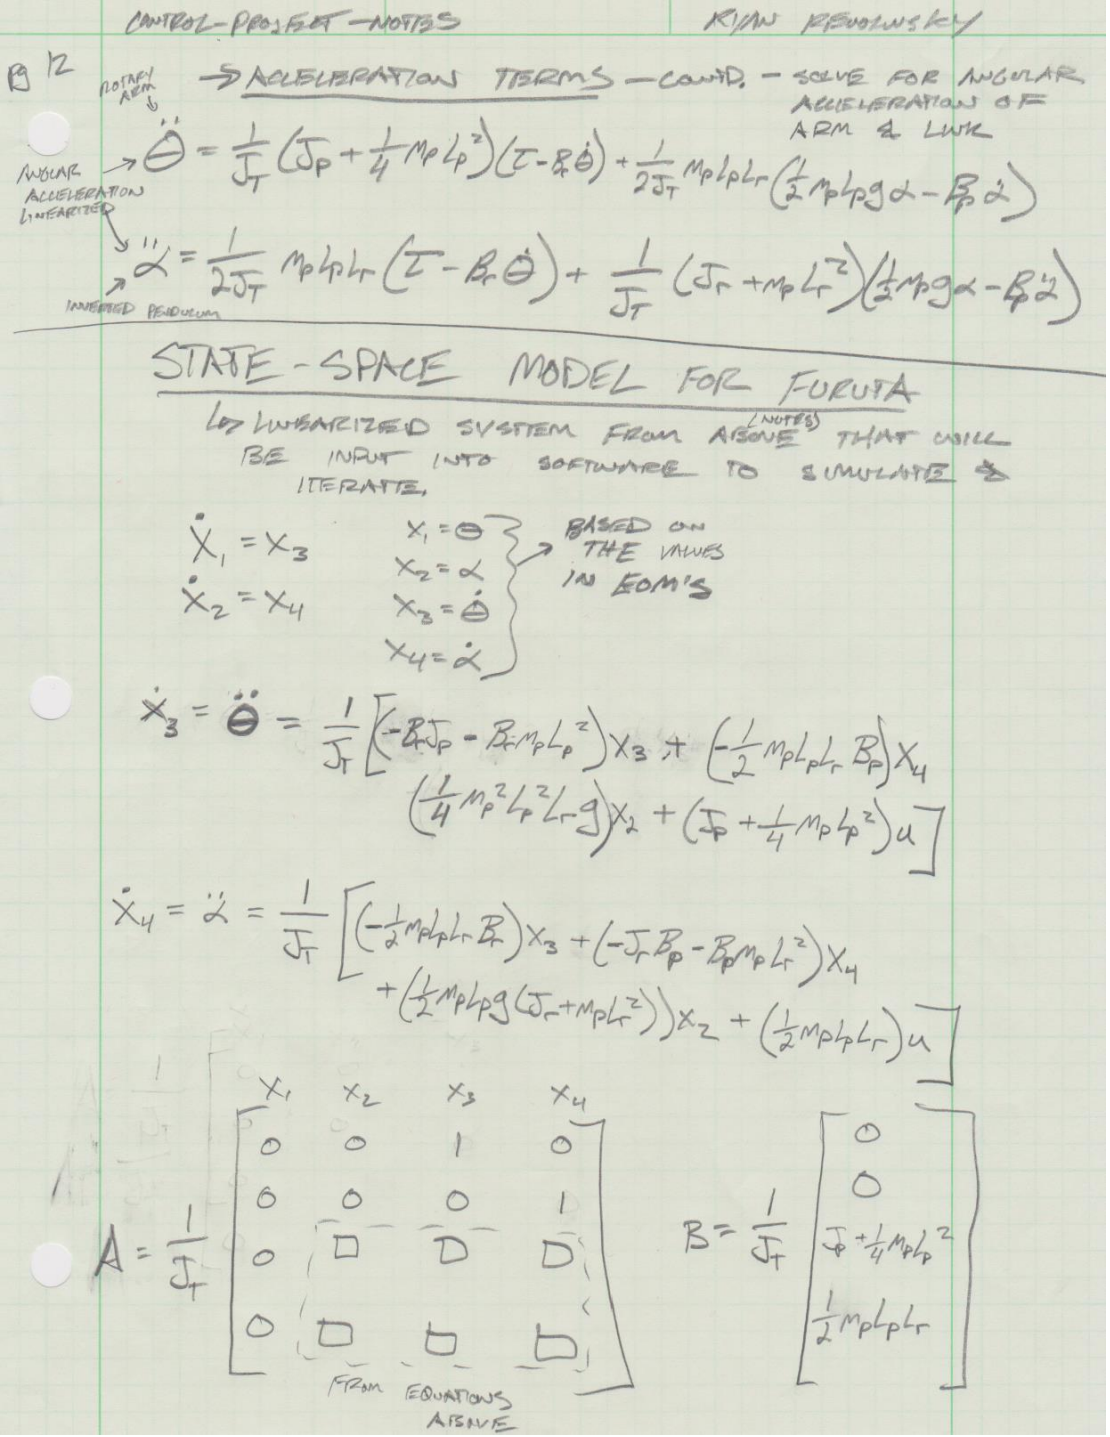 CONTROL-PROJECT-NOTES RYAN REVOLINSKY
Pg 12
→ ACCELERATION TERMS - CONTD. - SOLVE FOR ANGULAR
ACCELERATION OF
ARM & LINK
ROTARY
ARM
θ̈ = 1/J_T (J_p + 1/4 m_p L_p²)(τ - B_r θ̇) + 1/2J_T m_p L_p L_r (1/2 m_p L_p g α - B_p α̇)
ANGULAR
ACCELERATION
LINEARIZED
α̈ = 1/2J_T m_p L_p L_r (τ - B_r θ̇) + 1/J_T (J_r + m_p L_r²)(1/2 m_p g α - B_p α̇)
INVERTED PENDULUM
STATE-SPACE MODEL FOR FURUTA
↳ LINEARIZED SYSTEM FROM ABOVE (NOTES) THAT WILL
BE INPUT INTO SOFTWARE TO SIMULATE &
ITERATE.
ẋ₁ = x₃
ẋ₂ = x₄
x₁ = θ
x₂ = α
x₃ = θ̇
x₄ = α̇
BASED ON
THE VALUES
IN EOM'S
ẋ₃ = θ̈ = 1/J_T [(-B_r J_p - B_r m_p L_p²)x₃ + (-1/2 m_p L_p L_r B_p)x₄
(1/4 m_p² L_p² L_r g)x₂ + (J_p + 1/4 m_p L_p²)u]
ẋ₄ = α̈ = 1/J_T [(-1/2 m_p L_p L_r B_r)x₃ + (-J_r B_p - B_p m_p L_r²)x₄
+ (1/2 m_p L_p g (J_r + m_p L_r²))x₂ + (1/2 m_p L_p L_r)u]
x₁ x₂ x₃ x₄
0 0 1 0
0 0 0 1
A = 1/J_T
0 □ □ □
0 □ □ □
FROM EQUATIONS
ABOVE
B = 1/J_T
0
0
J_p + 1/4 m_p L_p²
1/2 m_p L_p L_r